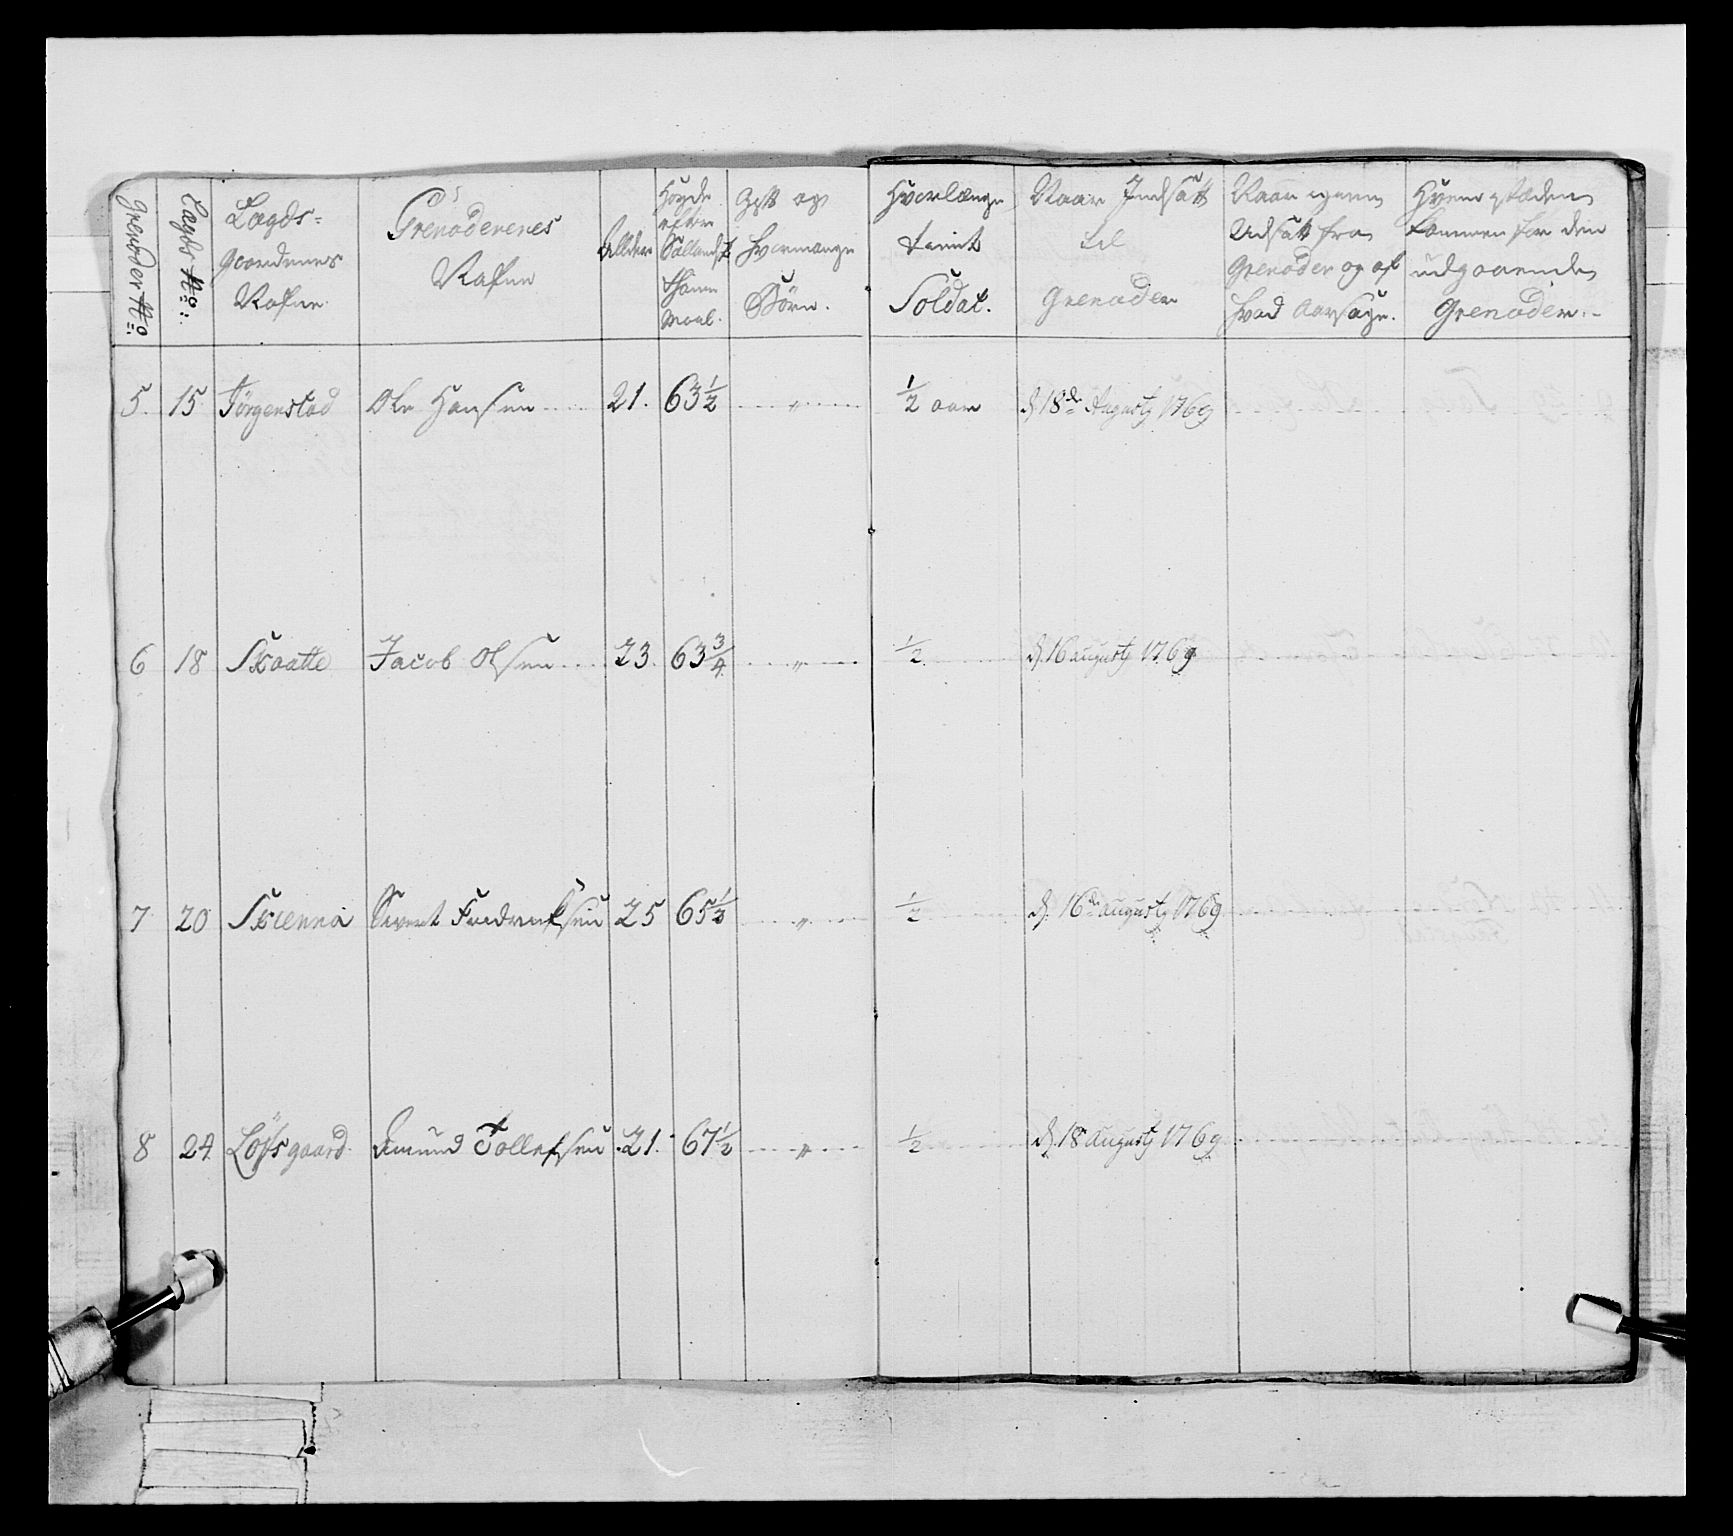 Grenoder No
Lægds No
Lægds-
gaardenes
Nafne
Grenoderenes
Nafne
Allder
Høyde
efter
Sællandsk
Maal.
Gift og
hvormange
Børn.
Hvorlænge
tient
Soldat.
Naar Indsatt
til
Grenoder
Naar igien
Udsatt fra
Grenoder og af
hvad Aarsage.
Hvem i stæden
kommen for den
udgaaende
Grenoder.
5. 15 Jörgenstad Ole Hansen 21. 63½ " ½ aar d. 18de Augusty 1769
6 18 Skaatte Jacob Olsen 23. 63¾ " ½ d. 16 augusty 1769
7 20 Skienna Sivert Fredrecksen 25 65½ " ½ d. 16de augusty 1769
8 24 Löfsgaard Amund Tollefsen 21. 67½ " ½ d. 18 augusty 1769